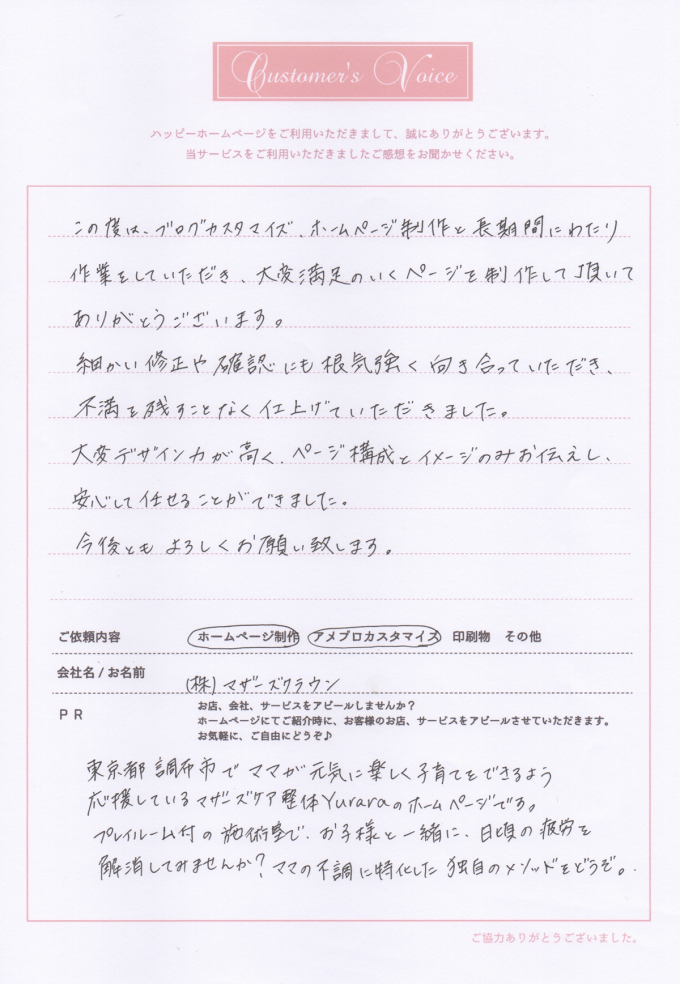 Customer's Voice
ハッピーホームページをご利用いただきまして、誠にありがとうございます。
当サービスをご利用いただきましたご感想をお聞かせください。
この度は、ブログカスタマイズ、ホームページ制作と長期間にわたり
作業をしていただき、大変満足のいくページを制作して頂いて
ありがとうございます。
細かい修正や確認にも根気強く向き合っていただき、
不満を残すことなく仕上げていただきました。
大変デザイン力が高く、ページ構成とイメージのみお伝えし、
安心して任せることができました。
今後ともよろしくお願い致します。
ご依頼内容 ホームページ制作 アメブロカスタマイズ 印刷物 その他
会社名/お名前 (株)マザーズクラウン
PR お店、会社、サービスをアピールしませんか?
ホームページにてご紹介時に、お客様のお店、サービスをアピールさせていただきます。
お気軽に、ご自由にどうぞ♪
東京都調布市でママが元気に楽しく子育てをできるよう
応援しているマザーズケア整体Yuraraのホームページです。
プレイルーム付の施術室で、お子様と一緒に、日頃の疲労を
解消してみませんか?ママの不調に特化した独自のメソッドをどうぞ。
ご協力ありがとうございました。